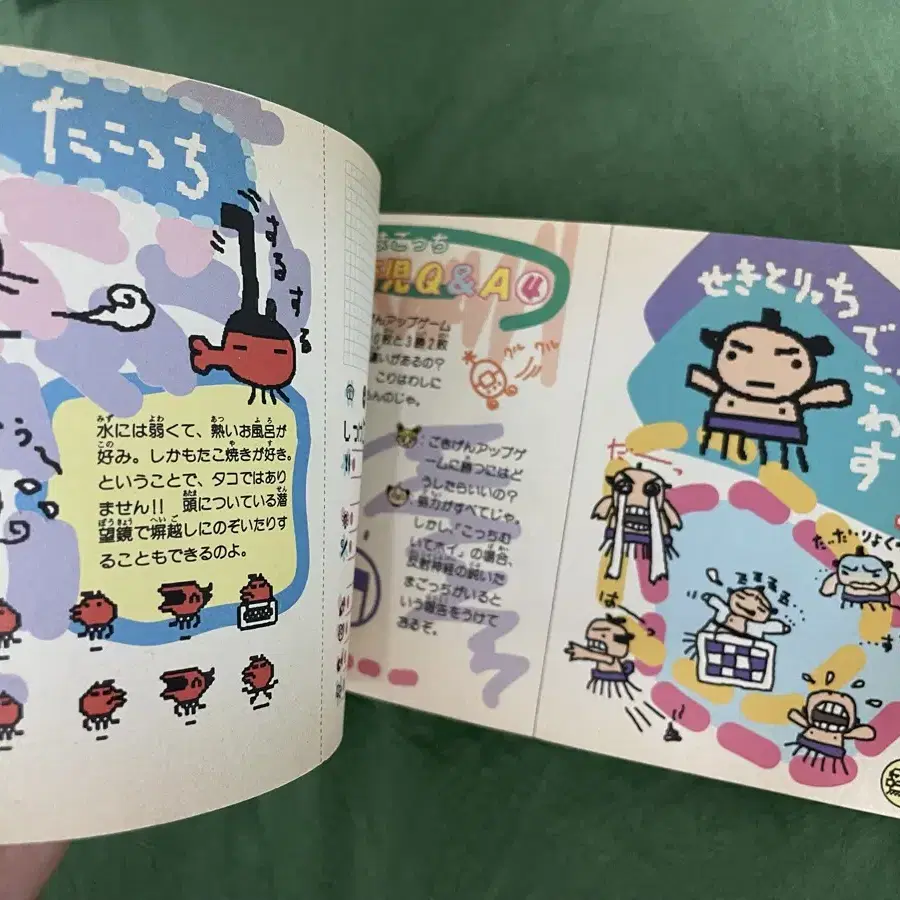 たこっち
するする
水には弱くて、熱いお風呂が
好み。しかもたこ焼きが好き。
ということで、タコではあり
ません!! 頭についている潜
望鏡で塀越しにのぞいたりす
ることもできるのよ。
まごっち
児Q&A4
げんアップゲーム
0敗と3勝2敗
違いがあるの?
こりはわしに
んのじゃ。
クル クル
ごきげんアップゲ
ームに勝つにはど
うしたらいいの?
努力がすべてじゃ。
しかし、「こっちむ
いてホイ」の場合、
反射神経の鋭いた
まごっちがいると
いう報告をうけて
おるぞ。
せきとりっち
でごわす
だーっ
だっだいりょく
はーっ